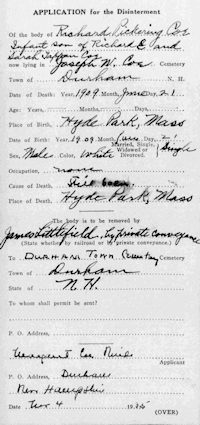 APPLICATION for the Disinterment
Of the body of Richard Pickering Coe
Infant son of Richard C and
Sarah Coe
now lying in Joseph W. Coe Cemetery
Town of Durham N. H.
Date of Death: Year, 1909 Month, June Day, 21
Age: Years, Months, Days,
Place of Birth, Hyde Park, Mass
Date of Birth: Year, 1909 Month, June Day, 21
Sex, Male Color, White Married, Single, Widowed or Divorced } Single
Occupation, none
Cause of Death, Still born
Place of Death, Hyde Park, Mass
The body is to be removed by
James Littlefield, by private conveyance
(State whether by railroad or by private conveyance.)
To DURHAM TOWN Cemetery
Town of Durham
State of N. H.
To whom shall permit be sent?
P. O. Address,
Margaret Coe
Applicant
P. O. Address, Durham
New Hampshire
Date Nov 4 19
(OVER)